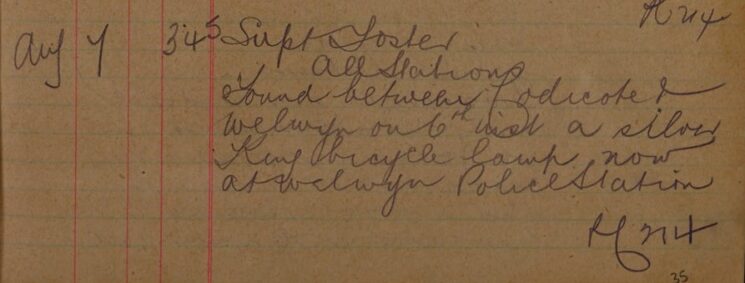 PC 214
Aug 7 345 Supt Foster.
All Stations
Found between Codicote &
Welwyn on 6th inst a silver
King bicycle lamp now
at Welwyn Police Station
PC 214
35